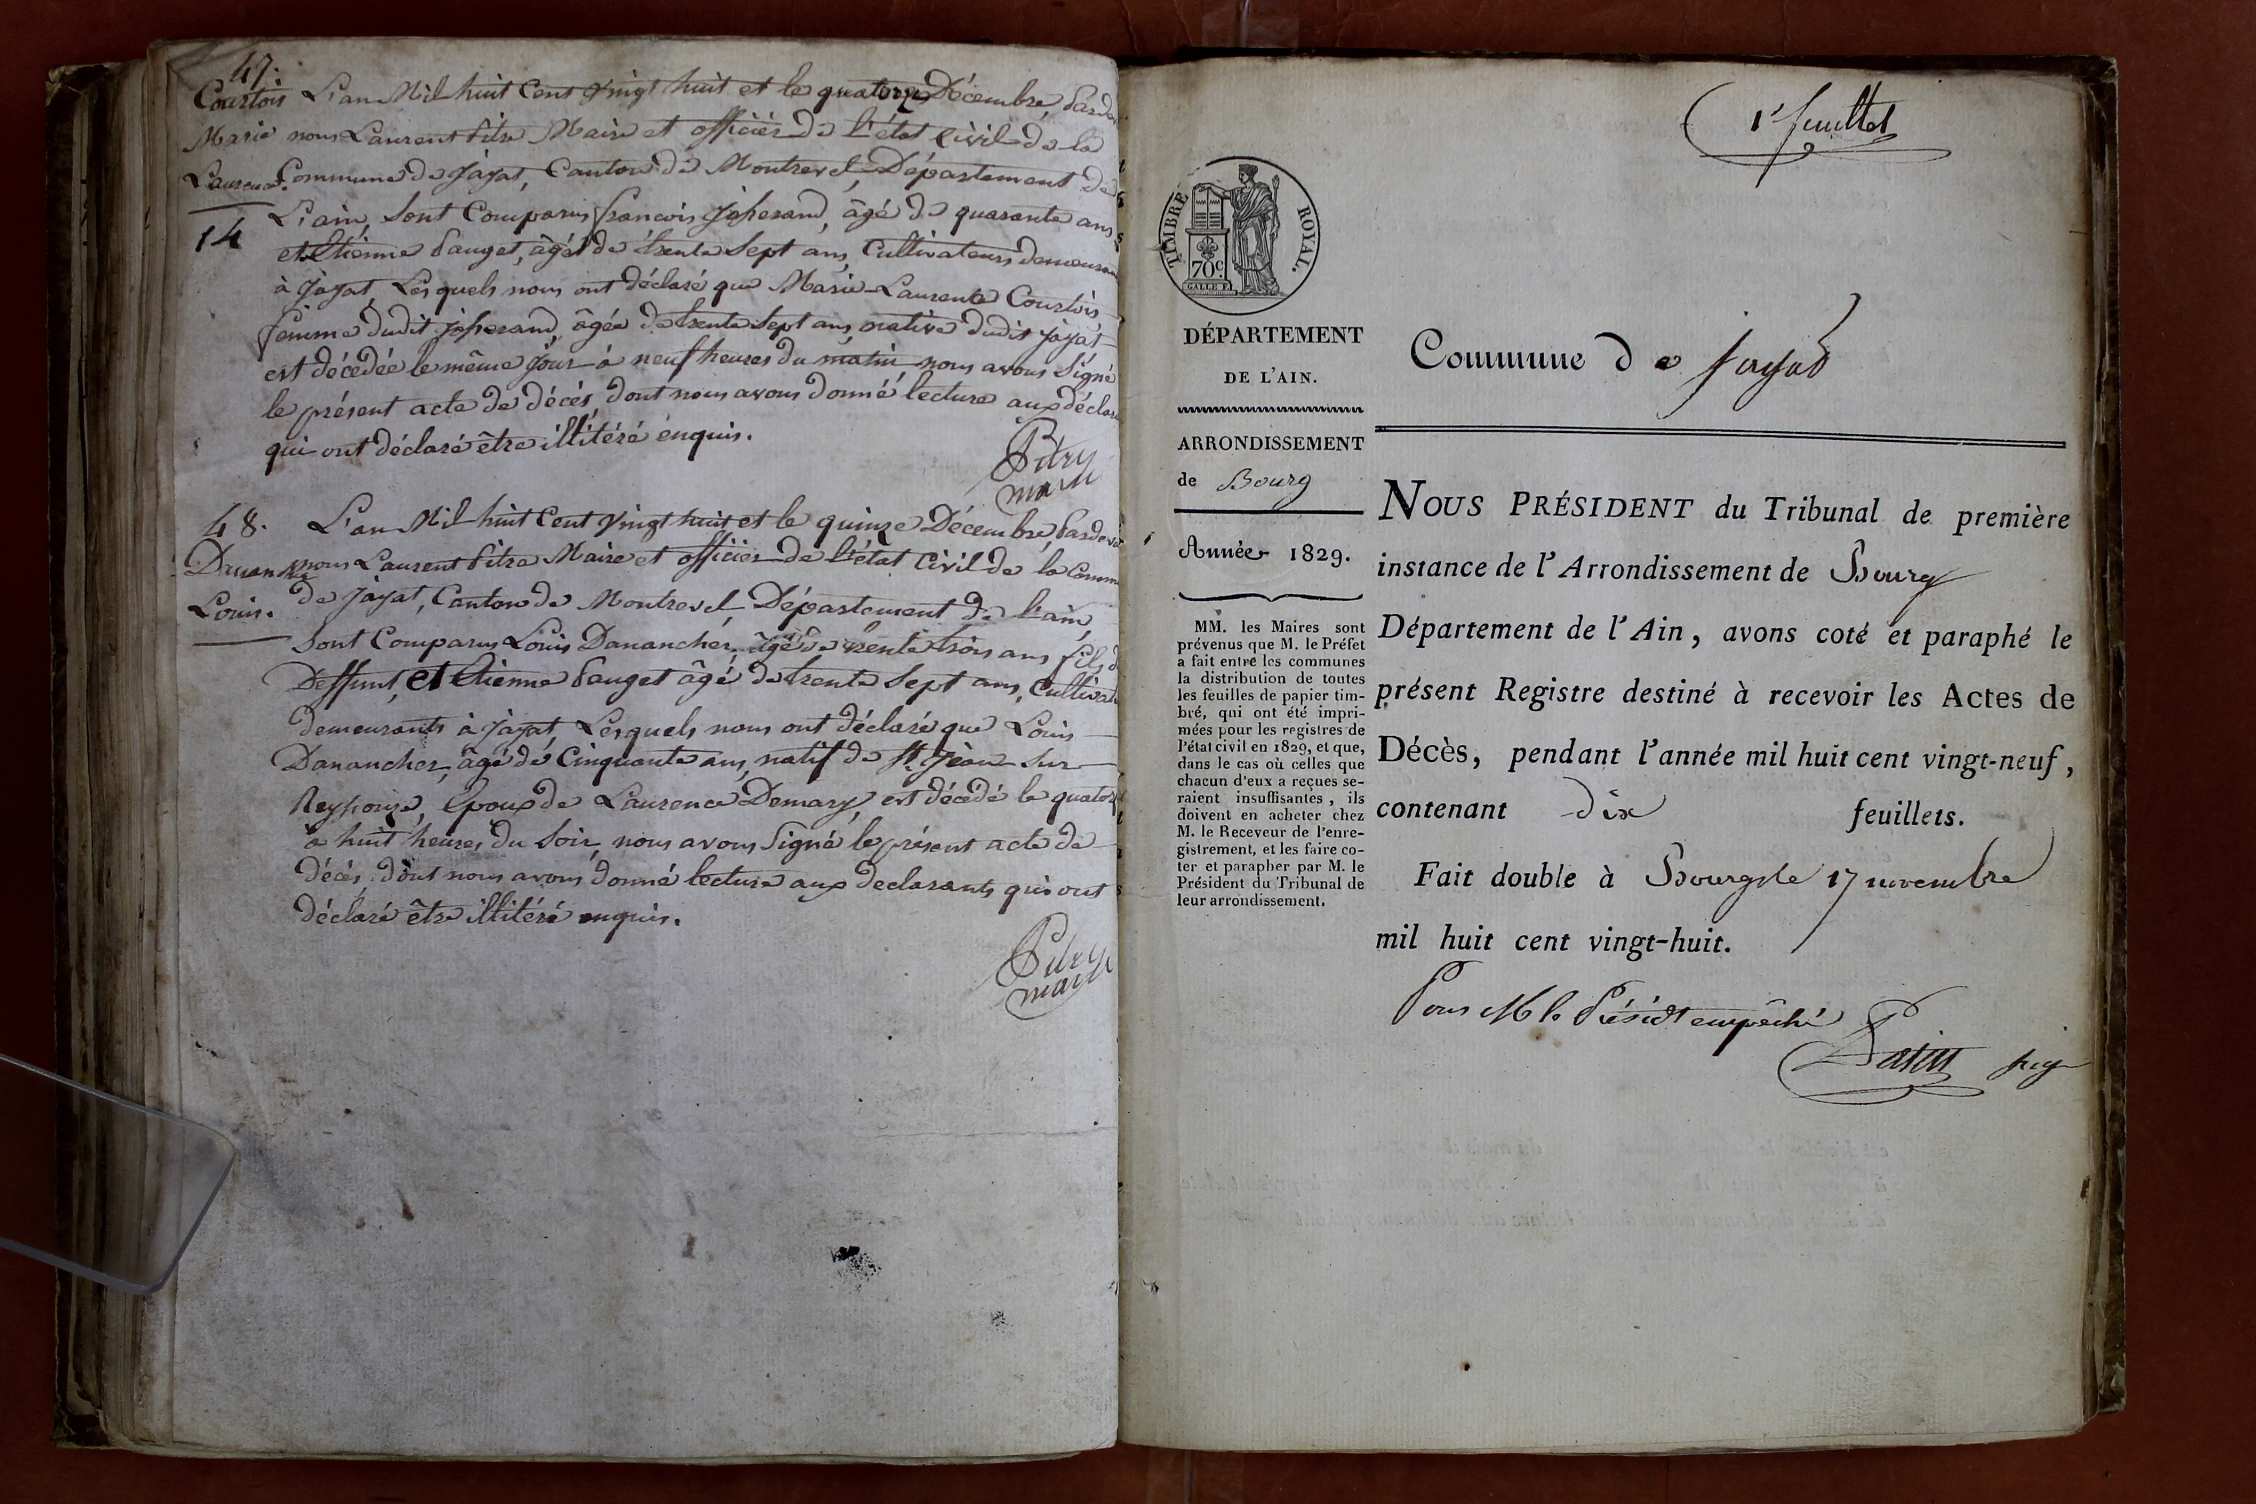 47.
Courtois
Marie
Laurence.
14
L'an Mil huit Cent vingt huit et le quatorze Décembre, Pardev
nous Laurent Pitre Maire et officier de l'état Civil de la
Commune de Jayat, Canton de Montrevel, Département de
L'ain, sont Comparus françois Josserand, âgé de quarante ans
et Etienne Pauget, âgé de trente sept ans, Cultivateurs demeurans
à Jayat, Lesquels nous ont déclaré que Marie-Laurence Courtois
femme dudit Josserand, âgée de trente sept ans, native dudit Jayat
est décédée le même jour à neuf heures du matin, nous avons Signé
le présent acte de décés, dont nous avons donné lecture aux déclar
qui ont déclaré être illitéré enquis.
Pitre
maire
48.
Danancher
Louis.
L'an Mil huit Cent vingt huit et le quinze Décembre, Pardeva
nous Laurent Pitre Maire et officier de l'état Civil de la Comm
de Jayat, Canton de Montrevel, Département de l'ain,
sont Comparus Louis Danancher, âgé de trente trois ans, fils d
Deffunt, et Etienne Pauget âgé de trente sept ans, Cultivat
demeurants à Jayat, Lesquels nous ont déclaré que Louis
Danancher, âgé de Cinquante ans, natif de St. Jean Sur
Reyssouze, Epoux de Laurence Demary, est décédé le quator
à huit heures du Soir, nous avons Signé le présent acte de
décés, dont nous avons donné lecture aux declarants qui ont
déclaré être illitéré enquis.
Pitre
maire
1er feuillet
TIMBRE ROYAL.
70c
DÉPARTEMENT
DE L'AIN.
ARRONDISSEMENT
de Bourg
Année 1829.
MM. les Maires sont
prévenus que M. le Préfet
a fait entre les communes
la distribution de toutes
les feuilles de papier tim-
bré, qui ont été impri-
mées pour les registres de
l'état civil en 1829, et que,
dans le cas où celles que
chacun d'eux a reçues se-
raient insuffisantes, ils
doivent en acheter chez
M. le Receveur de l'enre-
gistrement, et les faire co-
ter et parapher par M. le
Président du Tribunal de
leur arrondissement.
Commune de Jayat
NOUS PRÉSIDENT du Tribunal de première
instance de l'Arrondissement de Bourg
Département de l'Ain, avons coté et paraphé le
présent Registre destiné à recevoir les Actes de
Décès, pendant l'année mil huit cent vingt-neuf,
contenant dix feuillets.
Fait double à Bourg le 17 novembre
mil huit cent vingt-huit.
Pour M le Présidt empêché